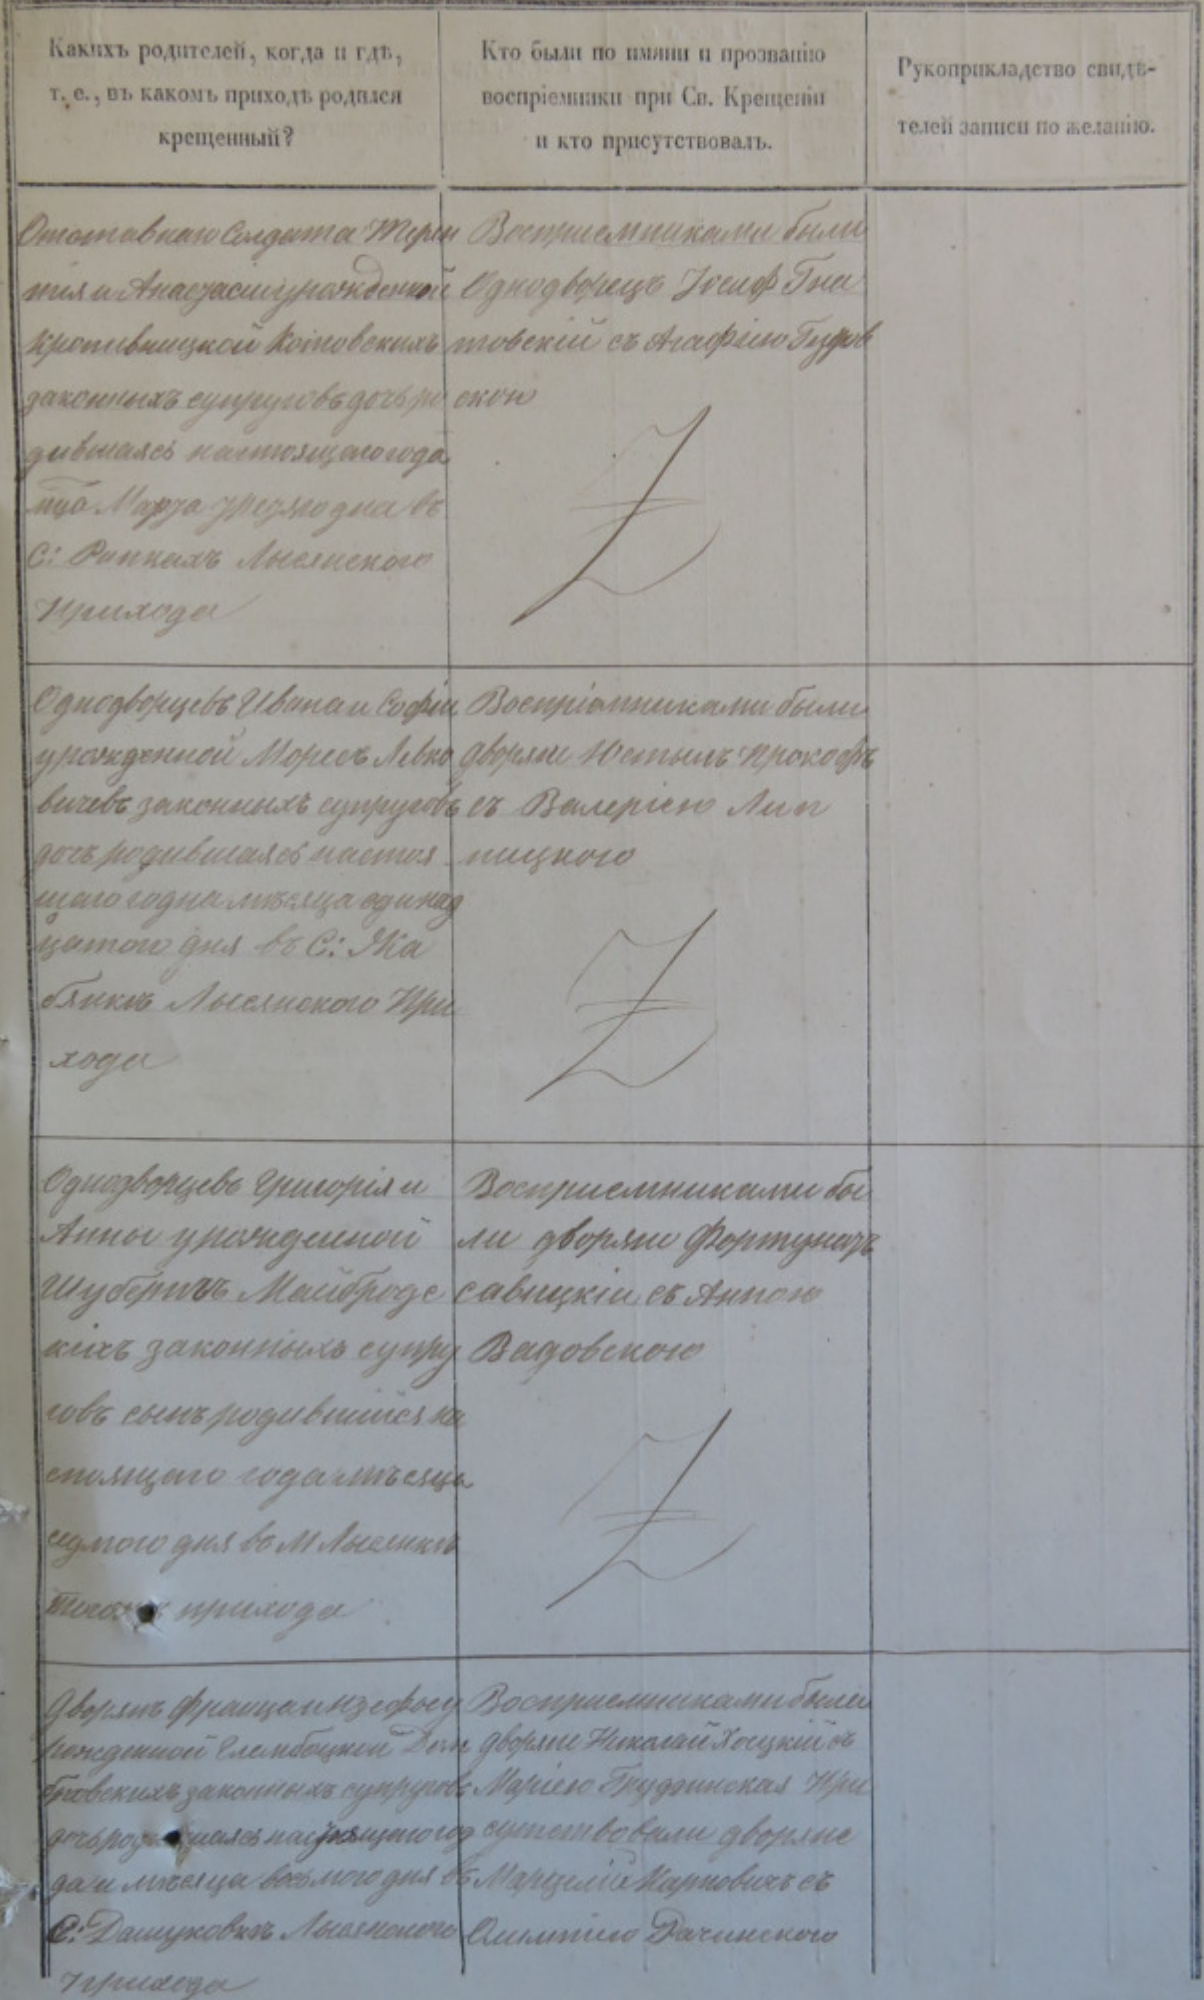 Какихъ родителей, когда и гдѣ,
т. е., въ какомъ приходѣ родился
крещенный?
Кто были по имяни и прозванію
воспріемники при Св. Крещеніи
и кто присутствовалъ.
Рукоприкладство свидѣ-
телей записи по желанію.
Отставнаго Солдата Терен
тія и Анастасіи урожденной
Кропивницкой Котовскихъ
законныхъ супруговъ дочь ро
дившаяся настоящаго года
мца Марта третяго дня въ
С: Рипкахъ Лысянского
Прихода
Восприемниками были
Однодворецъ Іосиф Гна
товскій съ Агафіею Гуров
скою
Однодворцевъ Ивана и Софіи
урожденной Моресъ Левко
вичевъ законныхъ супруговъ
дочь родившаяся настоя
щаго года мѣсяца одинад
цатого дня въ С: Жа
бянкѣ Лысянского При
хода
Воспріемниками были
дворяне Юстынъ Прокофъ
съ Валеріею Лип
ницкою
Однодворцевъ Григорія и
Анны урожденной
Шубертъ Майбродс
кихъ законныхъ супру
говъ сынъ родившійся на
стоящаго года мѣсяца
седмого дня въ М Лысянкѣ
прихода
Восприемниками бы
ли дворяне Фортунатъ
Савицкій съ Анною
Вадовскою
Дворянъ Франца и Юзефы у
рожденной Глембоцкой Дом
бровскихъ законныхъ супруговъ
дочь родившаяся настоящаго го
да и мѣсяца восьмого дня въ
С: Дашуковкѣ Лысянского
Прихода
Восприемниками были
дворяне Николай Хоецкій съ
Маріею Грудзинская При
сутствовали дворяне
Марцелій Карповичъ съ
Олимпіею Рачинского